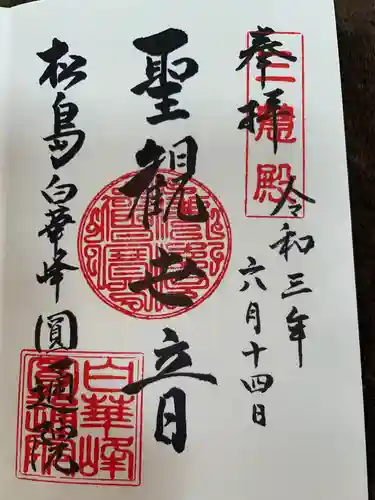 奉拝
三慧殿
令和三年
六月十四日
聖観世音
松島白華峰圓通院
白華峰